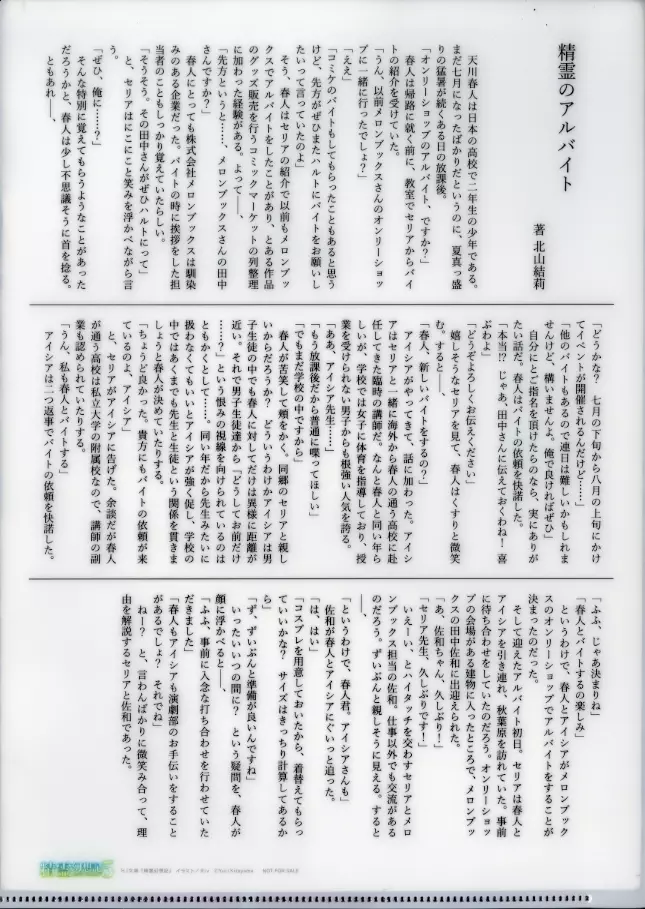 精霊のアルバイト
著 北山結莉
天川春人は日本の高校で二年生の少年である。
まだ七月になったばかりだというのに、夏真っ盛
りの猛暑が続くある日の放課後。
「オンリーショップのアルバイト、ですか？」
春人は帰路に就く前に、教室でセリアからバイ
トの紹介を受けていた。
「うん、以前メロンブックスさんのオンリーショッ
プに一緒に行ったでしょ？」
「ええ」
「コミケのバイトもしてもらったこともあると思う
けど、先方がぜひまたハルトにバイトをお願いし
たいって言っていたのよ」
そう、春人はセリアの紹介で以前もメロンブッ
クスでアルバイトをしたことがあり、とある作品
のグッズ販売を行うコミックマーケットの列整理
に加わった経験がある。よって――、
「先方というと……、メロンブックスさんの田中
さんですか？」
春人にとっても株式会社メロンブックスは馴染
みのある企業だった。バイトの時に挨拶をした担
当者のこともしっかり覚えていたらしい。
「そうそう。その田中さんがぜひハルトにって」
と、セリアはにこにこと笑みを浮かべながら言
う。
「ぜひ、俺に……？」
そんな特別に覚えてもらうようなことがあった
だろうかと、春人は少し不思議そうに首を捻る。
ともあれ――、
「どうかな？　七月の下旬から八月の上旬にかけ
てイベントが開催されるんだけど……」
「他のバイトもあるので連日は難しいかもしれま
せんけど、構いませんよ。俺で良ければぜひ」
自分にとご指名を頂けたらのなら、実にありが
たい話だ。春人はバイトの依頼を快諾した。
「本当!?　じゃあ、田中さんに伝えておくわね！　喜
ぶわよ」
「どうぞよろしくお伝えください」
嬉しそうなセリアを見て、春人はくすりと微笑
む。すると――、
「春人、新しいバイトをするの？」
アイシアがやってきて、話に加わった。アイシ
アはセリアと一緒に海外から春人の通う高校に赴
任してきた臨時の講師だ。なんと春人と同い年ら
しいが、学校では女子に体育を指導しており、授
業を受けられない男子からも根強い人気を誇る。
「ああ、アイシア先生……」
「もう放課後だから普通に喋ってほしい」
「でもまだ学校の中ですから」
春人が苦笑して頬をかく。同郷のセリアと親し
いからだろうか？　どういうわけかアイシアは男
子生徒の中でも春人に対してだけは異様に距離が
近い。それで男子生徒達から「どうしてお前だけ
……？」という恨みの視線を向けられているのは
ともかくとして……。同い年だから先生みたいに
扱わなくてもいいとアイシアが強く促し、学校の
中ではあくまでも先生と生徒という関係を貫きま
しょうと春人が決めていたりする。
「ちょうど良かった。貴方にもバイトの依頼が来
ているのよ、アイシア」
と、セリアがアイシアに告げた。余談だが春人
が通う高校は私立大学の附属校なので、講師の副
業も認められていたりする。
「うん、私も春人とバイトする」
アイシアは二つ返事でバイトの依頼を快諾した。
「ふふ、じゃあ決まりね」
「春人とバイトするの楽しみ」
というわけで、春人とアイシアがメロンブック
スのオンリーショップでアルバイトをすることが
決まったのだった。
そして迎えたアルバイト初日。セリアは春人と
アイシアを引き連れ、秋葉原を訪れていた。事前
に待ち合わせをしていたのだろう。オンリーショッ
プの会場がある建物に入ったところで、メロンブッ
クスの田中佐和に出迎えられた。
「あ、佐和ちゃん、久しぶり！」
「セリア先生、久しぶりです！」
いえーい、とハイタッチを交わすセリアとメロ
ンブックス担当の佐和。仕事以外でも交流がある
のだろう。ずいぶんと親しそうに見える。すると
――、
「というわけで、春人君。アイシアさんも」
佐和が春人とアイシアにぐいっと迫った。
「は、はい」
「コスプレを用意しておいたから、着替えてもらっ
ていいかな？　サイズはきっちり計算してあるか
ら」
「ず、ずいぶんと準備が良いんですね」
いったいいつの間に？　という疑問を、春人が
顔に浮かべると――、
「ふふ、事前に入念な打ち合わせを行わせていた
だきました」
「春人もアイシアも演劇部のお手伝いをすること
があるでしょ？　それでね」
ねー？　と、言わんばかりに微笑み合って、理
由を解説するセリアと佐和であった。
NOT FOR SALE